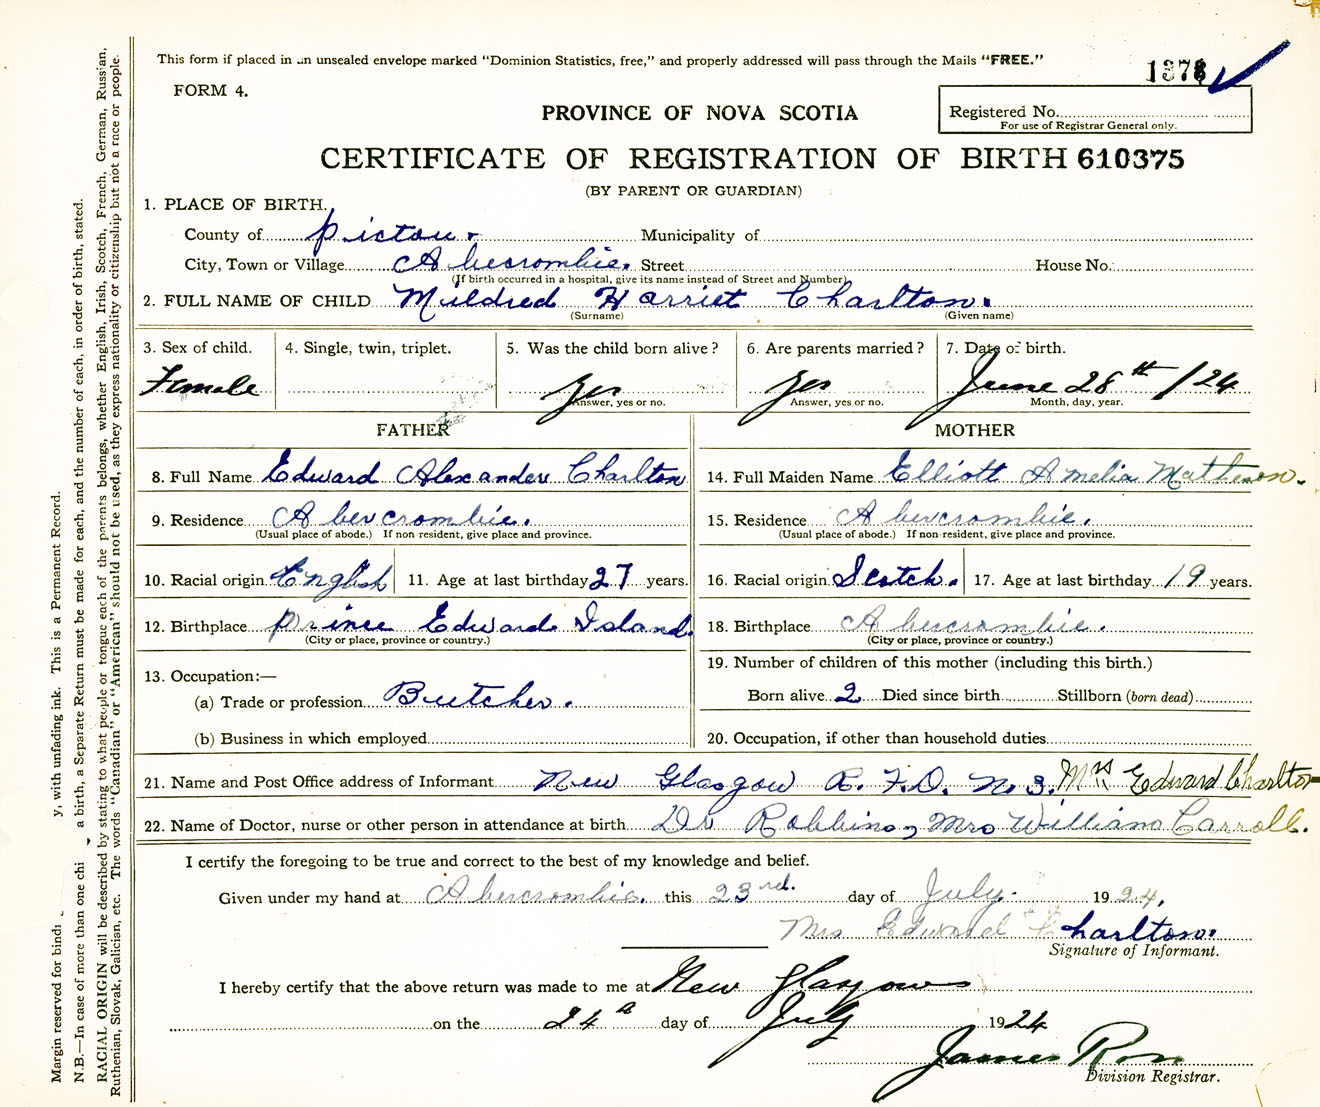 This form if placed in an unsealed envelope marked "Dominion Statistics, free," and properly addressed will pass through the Mails "FREE."
FORM 4.
PROVINCE OF NOVA SCOTIA
Registered No.
For use of Registrar General only.
CERTIFICATE OF REGISTRATION OF BIRTH 610375
(BY PARENT OR GUARDIAN)
1. PLACE OF BIRTH.
County of Pictou. Municipality of
City, Town or Village Abercrombie. Street House No.
(If birth occurred in a hospital, give its name instead of Street and Number)
2. FULL NAME OF CHILD Mildred Harriet Charlton.
(Surname) (Given name)
3. Sex of child. 4. Single, twin, triplet. 5. Was the child born alive? 6. Are parents married? 7. Date of birth.
Female yes yes June 28th /24
Answer, yes or no. Answer, yes or no. Month, day, year.
FATHER MOTHER
8. Full Name Edward Alexander Charlton 14. Full Maiden Name Elliott Amelia Matheson.
9. Residence Abercrombie. 15. Residence Abercrombie.
(Usual place of abode.) If non resident, give place and province. (Usual place of abode.) If non-resident, give place and province.
10. Racial origin English 11. Age at last birthday 27 years. 16. Racial origin Scotch. 17. Age at last birthday 19 years.
12. Birthplace Prince Edward Island. 18. Birthplace Abercrombie.
(City or place, province or country.) (City or place, province or country.)
13. Occupation:— 19. Number of children of this mother (including this birth.)
(a) Trade or profession Butcher. Born alive 2 Died since birth Stillborn (born dead)
(b) Business in which employed 20. Occupation, if other than household duties
21. Name and Post Office address of Informant New Glasgow R. F. D. N. 3. Mrs Edward Charlton
22. Name of Doctor, nurse or other person in attendance at birth Dr Robbins, Mrs William Carroll.
I certify the foregoing to be true and correct to the best of my knowledge and belief.
Given under my hand at Abercrombie. this 23rd. day of July. 1924.
Mrs Edward Charlton.
Signature of Informant.
I hereby certify that the above return was made to me at New Glasgow
on the 24th day of July 1924
James Ross
Division Registrar.
Margin reserved for bindi y, with unfading ink. This is a Permanent Record.
N.B.—In case of more than one chi a birth, a Separate Return must be made for each, and the number of each, in order of birth, stated.
RACIAL ORIGIN will be described by stating to what people or tongue each of the parents belongs, whether English, Irish, Scotch, French, German, Russian,
Ruthenian, Slovak, Galician, etc. The words "Canadian" or "American" should not be used, as they express nationality or citizenship but not a race or people.